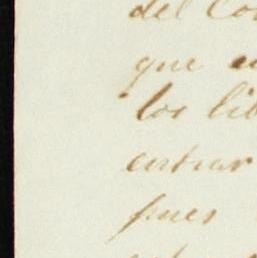 del Co
que
los lib
entrar
pues